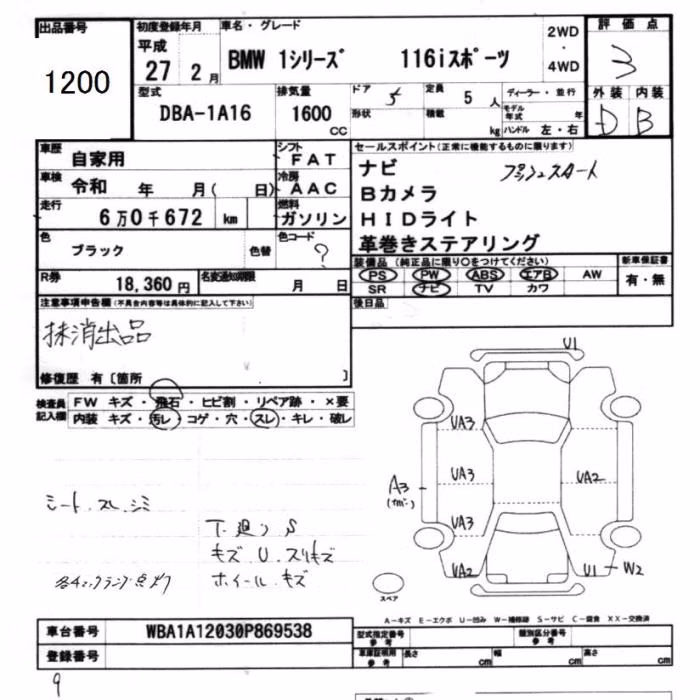 出品番号 初度登録年月 車名・グレード 評価点
1200 平成 27 2月 BMW 1シリーズ 116iスポーツ 2WD・4WD 3
型式 排気量 ドア 定員 ディーラー・並行 外装 内装
DBA-1A16 1600 CC 5 5人 モデル年式 年 D B
形状 積載 kg ハンドル 左・右
車歴 自家用 シフト FAT セールスポイント(正常に機能するものに限ります)
車検 令和 年 月( 日) 冷房 AAC ナビ プッシュスタート
Bカメラ
走行 6万0千672 km 燃料 ガソリン HIDライト
革巻きステアリング
色 ブラック 色替 色コード ?
装備品(純正品に限り○をつけてください) 新車保証書
R券 18,360円 名変通知期限 月 日 PS PW ABS エアB AW 有・無
SR ナビ TV カワ
注意事項申告欄(不具合内容等は具体的に記入して下さい) 後日品
抹消出品
修復歴 有〔箇所 〕
検査員記入欄 FW キズ・飛石・ヒビ割・リペア跡・×要
内装 キズ・汚レ・コゲ・穴・スレ・キレ・破レ
U1
UA3
UA3 UA2
A3
UA3
UA2 U1 W2
シート.スレ.シミ
下廻りS
キズ U.スリキズ
ホイール.キズ
スペア
A-キズ E-エクボ U-凹み W-補修跡 S-サビ C-腐食 XX-交換済
車台番号 WBA1A12030P869538 型式指定番号 参考 類別区分番号 参考
登録番号 車庫証明用 参考 長さ cm 幅 cm 高さ cm
9